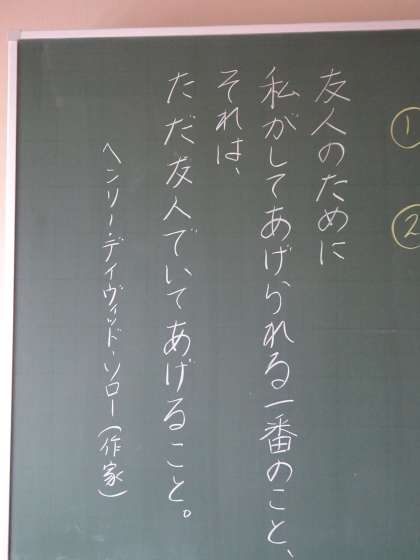 ①
②
友人のために
私がしてあげられる一番のこと、
それは、
ただ友人でいてあげること。
ヘンリー・デイヴィッド・ソロー(作家)